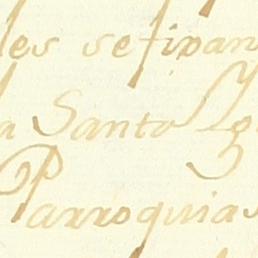 les se fixan
a Santo Yg
Parroquias